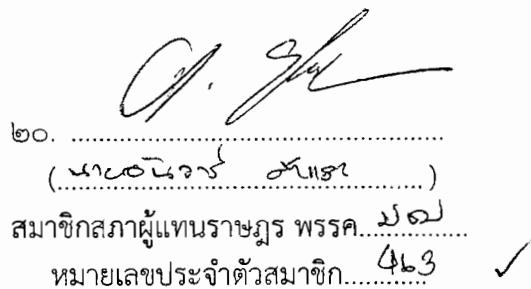 ๒๐. ........................................
(นายอันวาร์ สาและ)
สมาชิกสภาผู้แทนราษฎร พรรค
หมายเลขประจำตัวสมาชิก 463 ✓